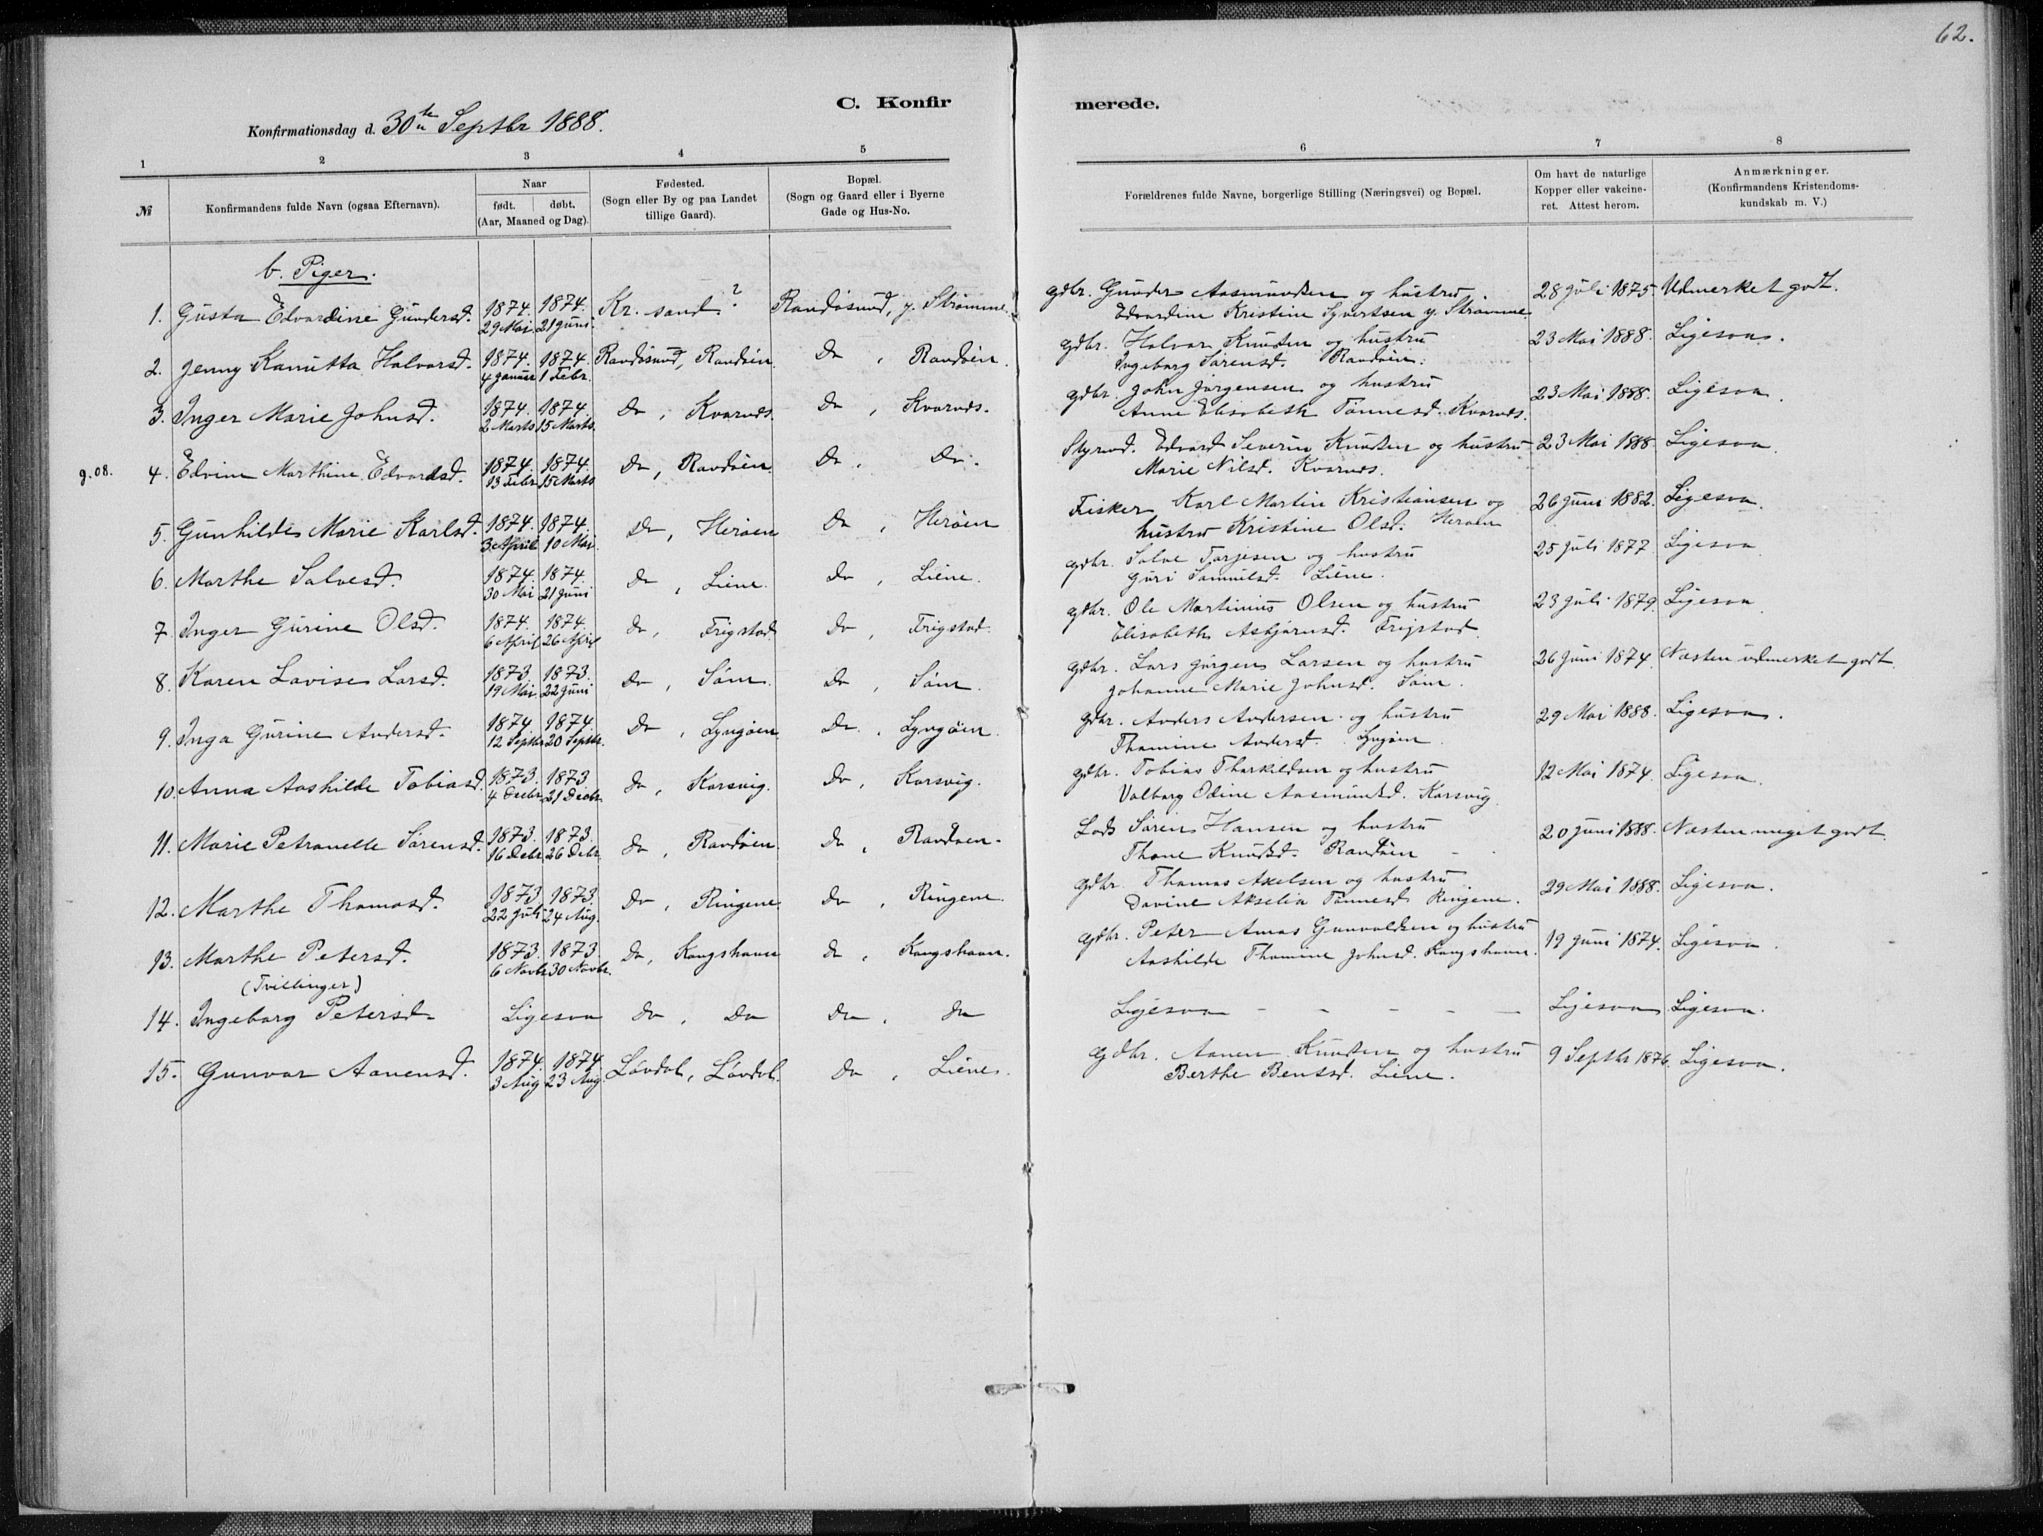 62.
C. Konfir merede.
Konfirmationsdag d. 30te Septbr 1888.
1 2 3 4 5 6 7 8
№
Konfirmandens fulde Navn (ogsaa Efternavn).
Naar
født. døbt.
(Aar, Maaned og Dag).
Fødested.
(Sogn eller By og paa Landet
tillige Gaard).
Bopæl.
(Sogn og Gaard eller i Byerne
Gade og Hus-No.
Forældrenes fulde Navne, borgerlige Stilling (Næringsvei) og Bopæl.
Om havt de naturlige
Kopper eller vakcine-
ret. Attest herom.
Anmærkninger.
(Konfirmandens Kristendoms-
kundskab m. V.)
b. Piger.
1. Gusta Edvardine Gundersd. 1874. 29 Mai 1874. 21 Juni. Kr. sand? Randøsund, y. Strømme. gdbr. Gunder Aasmundsen og hustru 28 Juli 1875. Udmerket godt.
Edvardine Kristine Syvertsen y. Strømme.
2. Jenny Kanutta Halvorsd. 1874. 4 Januar 1874. 1 Febr. Randøsund, Randøen Do, Randøen. gdbr. Halvor Knudsen og hustru 23 Mai 1888. Ligesaa.
Ingeborg Sørensd. Randøen.
3. Inger Marie Johnsd. 1874. 2 Marts 1874. 15 Marts. Do, Kvarnds. Do, Kvarnds. gdbr. John Jørgensen og hustru 23 Mai 1888. Ligesaa.
Anne Elisabeth Tønnesd. Kvarnds.
g. 08. 4. Edvine Marthine Edvardsd. 1874. 13 Febr 1874. 15 Marts Do, Randøen Do, Do. Styrmd. Edvard Severin Knudsen og hustru 23 Mai 1888. Ligesaa.
Marie Nilsd. Kvarnds.
5. Gunhilde Marie Karlsd. 1874. 3 April 1874. 10 Mai. Do, Herøen Do, Herøen Fisker Karl Martin Kristiansen og 26 Juni 1882. Ligesaa.
hustru Kristine Olsd. Herøen
6. Marthe Salvesd. 1874. 30 Mai 1874. 21 Juni Do, Liene. Do, Liene. gdbr. Salve Tarjesen og hustru 25 Juli 1877. Ligesaa
Guri Samuelsd. Liene.
7. Inger Gurine Olsd. 1874. 6 April 1874. 26 April Do, Frigstad Do, Frigstad. gdbr. Ole Martinius Olsen og hustru 23 Juli 1879. Ligesaa
Elisabeth Asbjørnsd. Frigstad.
8. Karen Lovise Larsd. 1873. 19 Mai 1873. 22 Juni Do, Søm. Do, Søm. gdbr. Lars Jørgen Larsen og hustru 26 Juni 1874. Næsten udmerket godt.
Johanne Marie Johnsd. Søm.
9. Inga Gurine Andersd. 1874 12 Septbr 1874 20 Septbr. Do, Lyngøen. Do, Lyngøen. gdbr. Anders Andersen og hustru 29 Mai 1888. Ligesaa.
Thomine Andersd. Lyngøen.
10. Anna Aashilde Tobiasd. 1873. 4 Decbr 1873 21 Decbr. Do, Korsvig. Do, Korsvig. gdbr. Tobias Tharkildsen og hustru 12 Mai 1874. Ligesaa.
Valborg Odine Aasmundsd. Korsvig
11. Marie Petronelle Sørensd. 1873. 16 Debr. 1873. 26 Debr. Do, Randøen. Do, Randøen. Lods Søren Hansen og hustru 20 Juni 1888. Næsten meget godt.
Thone Knudsd. Randøen
12. Marthe Thomasd. 1873. 22 Juli 1873. 24 Aug. Do, Ringene. Do, Ringene. gdbr. Thomas Axelsen og hustru 29 Mai 1888. Ligesaa.
Davine Akselia Tønnesd. Ringene.
13. Marthe Petersd. 1873. 6 Novbr 1873. 30 Novbr. Do, Kongshavn Do, Kongshavn. gdbr. Peter Amas Gunvaldsen og hustru 19 Juni 1874. Ligesaa.
Aashilde Thomine Johnsd. Kongshavn.
(Tvillinger)
14. Ingeborg Petersd. Ligesaa Do, Do Do, Do Ligesaa - - - - - Ligesaa Ligesaa.
15. Gunvor Aanensd. 1874. 3 Aug 1874. 23 Aug. Løvdal, Løvdal. Do, Liene. gdbr. Aanen Knudsen og hustru 9 Septbr 1876. Ligesaa.
Berthe Bentsd. Liene.